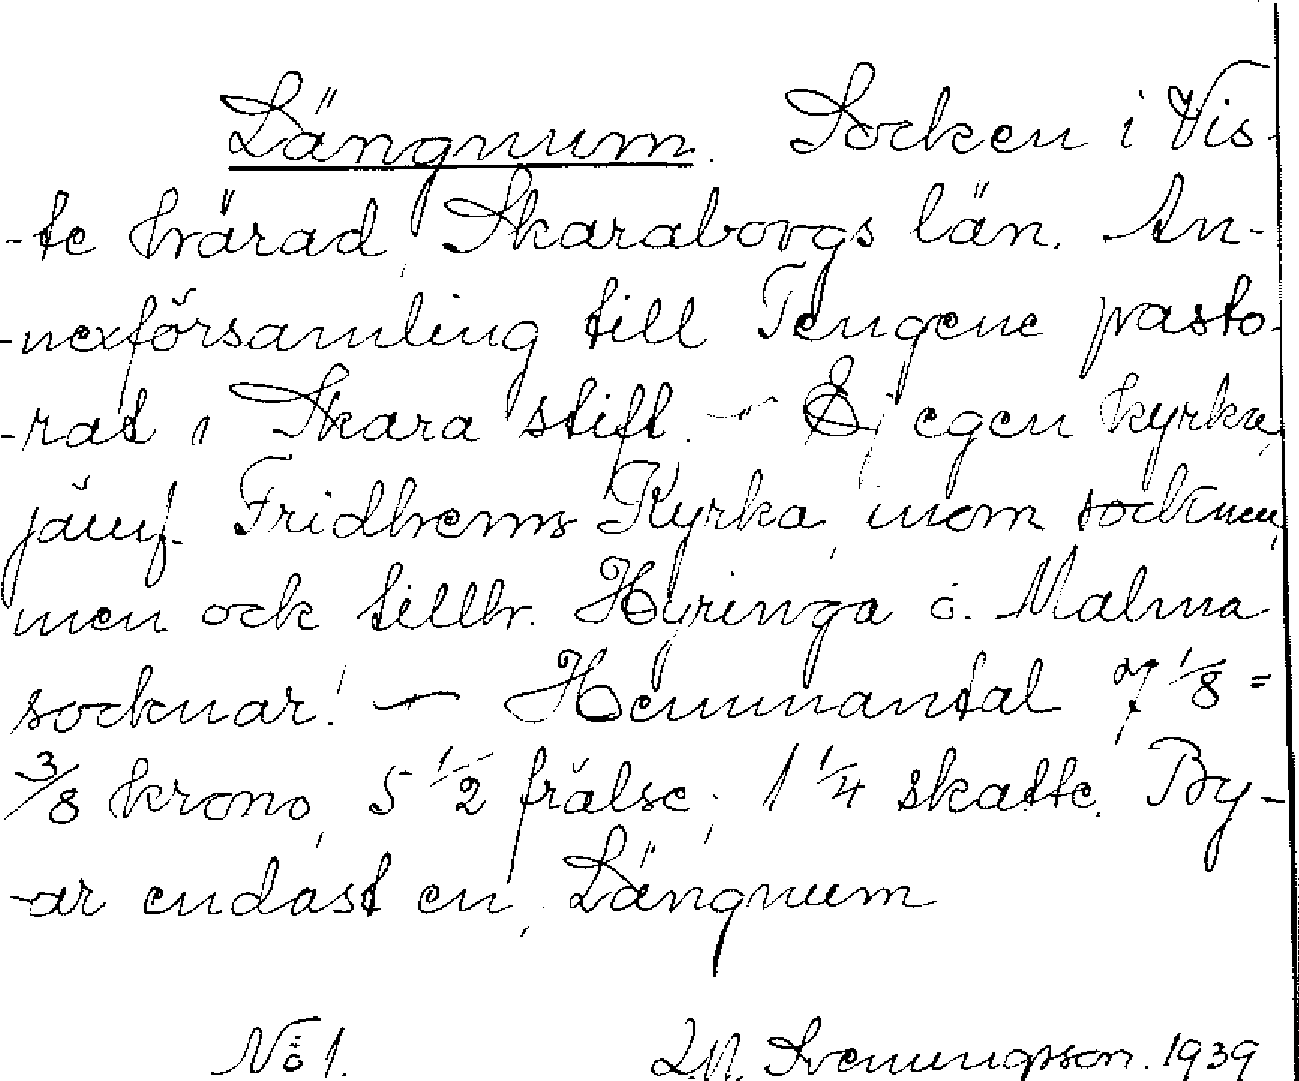 Längnum. Socken i Vis-
-te härad, Skaraborgs län. An-
-nexförsamling till Tengene pasto-
-rat i Skara stift. - Ej egen kyrka,
jämf. Fridhems Kyrka, inom socknen,
men ock tillhr. Hyringa o. Malma
socknar! - Hemmantal 7 1/8 =
3/8 krono, 5 1/2 frälse; 1 1/4 skatte. By-
-ar endast en, Längnum
No 1. Svenungsson. 1939